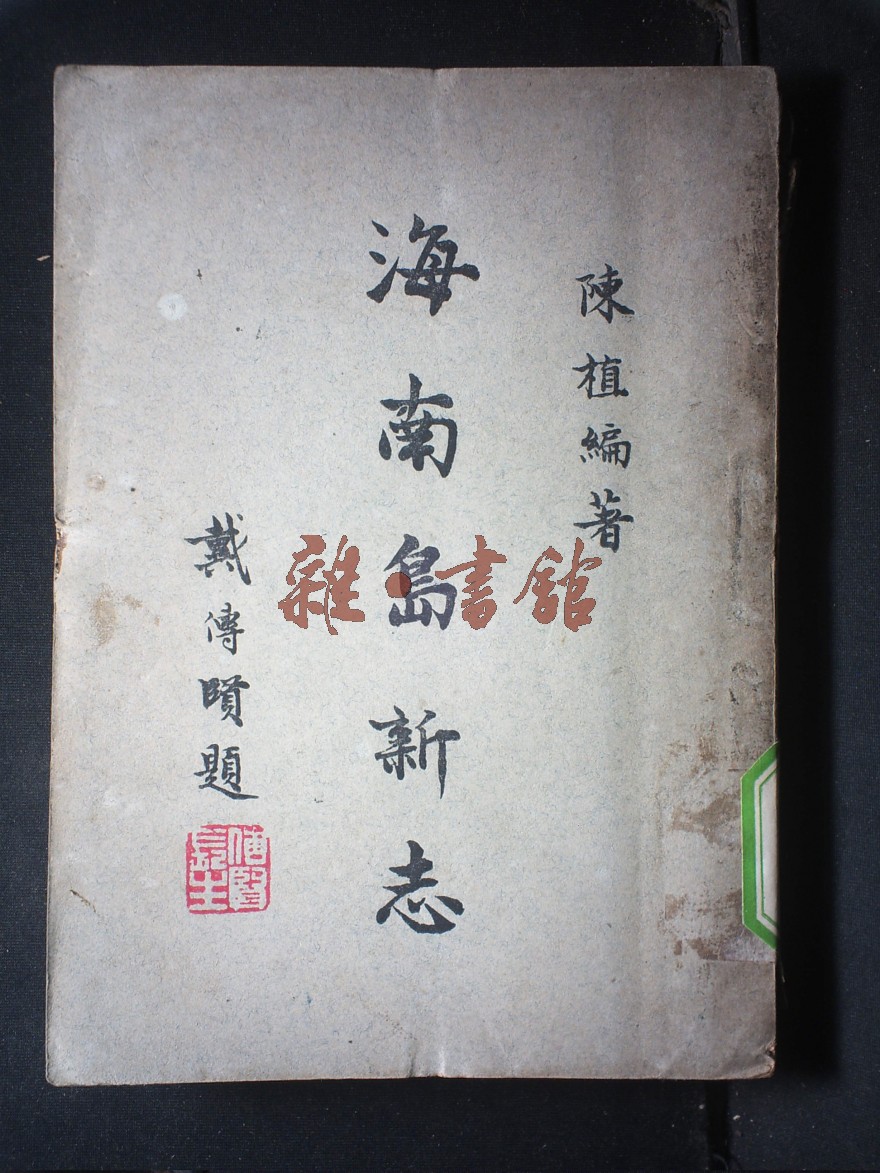 陳植編著
海南島新志
戴傳賢題
雜·書館